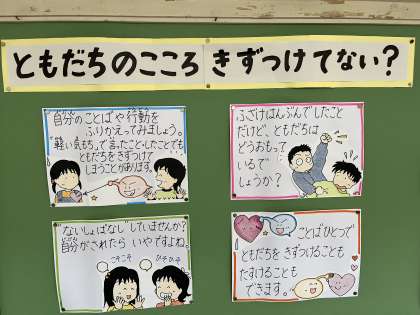 ともだちのこころ きずつけてない?
自分のことばや行動を
ふりかえってみましょう。
"軽い気もち"で言ったこと・したことでも
ともだちをきずつけて
しまうことがあります。
ふざけはんぶんでしたこと
だけど、ともだちは
どうおもって
いるで
しょうか?
"ないしょばなし"していませんか?
自分がされたら いやですよね。
こそこそ
ひそひそ
ことばひとつで
ともだちを きずつけることも
たすけることも
できます。